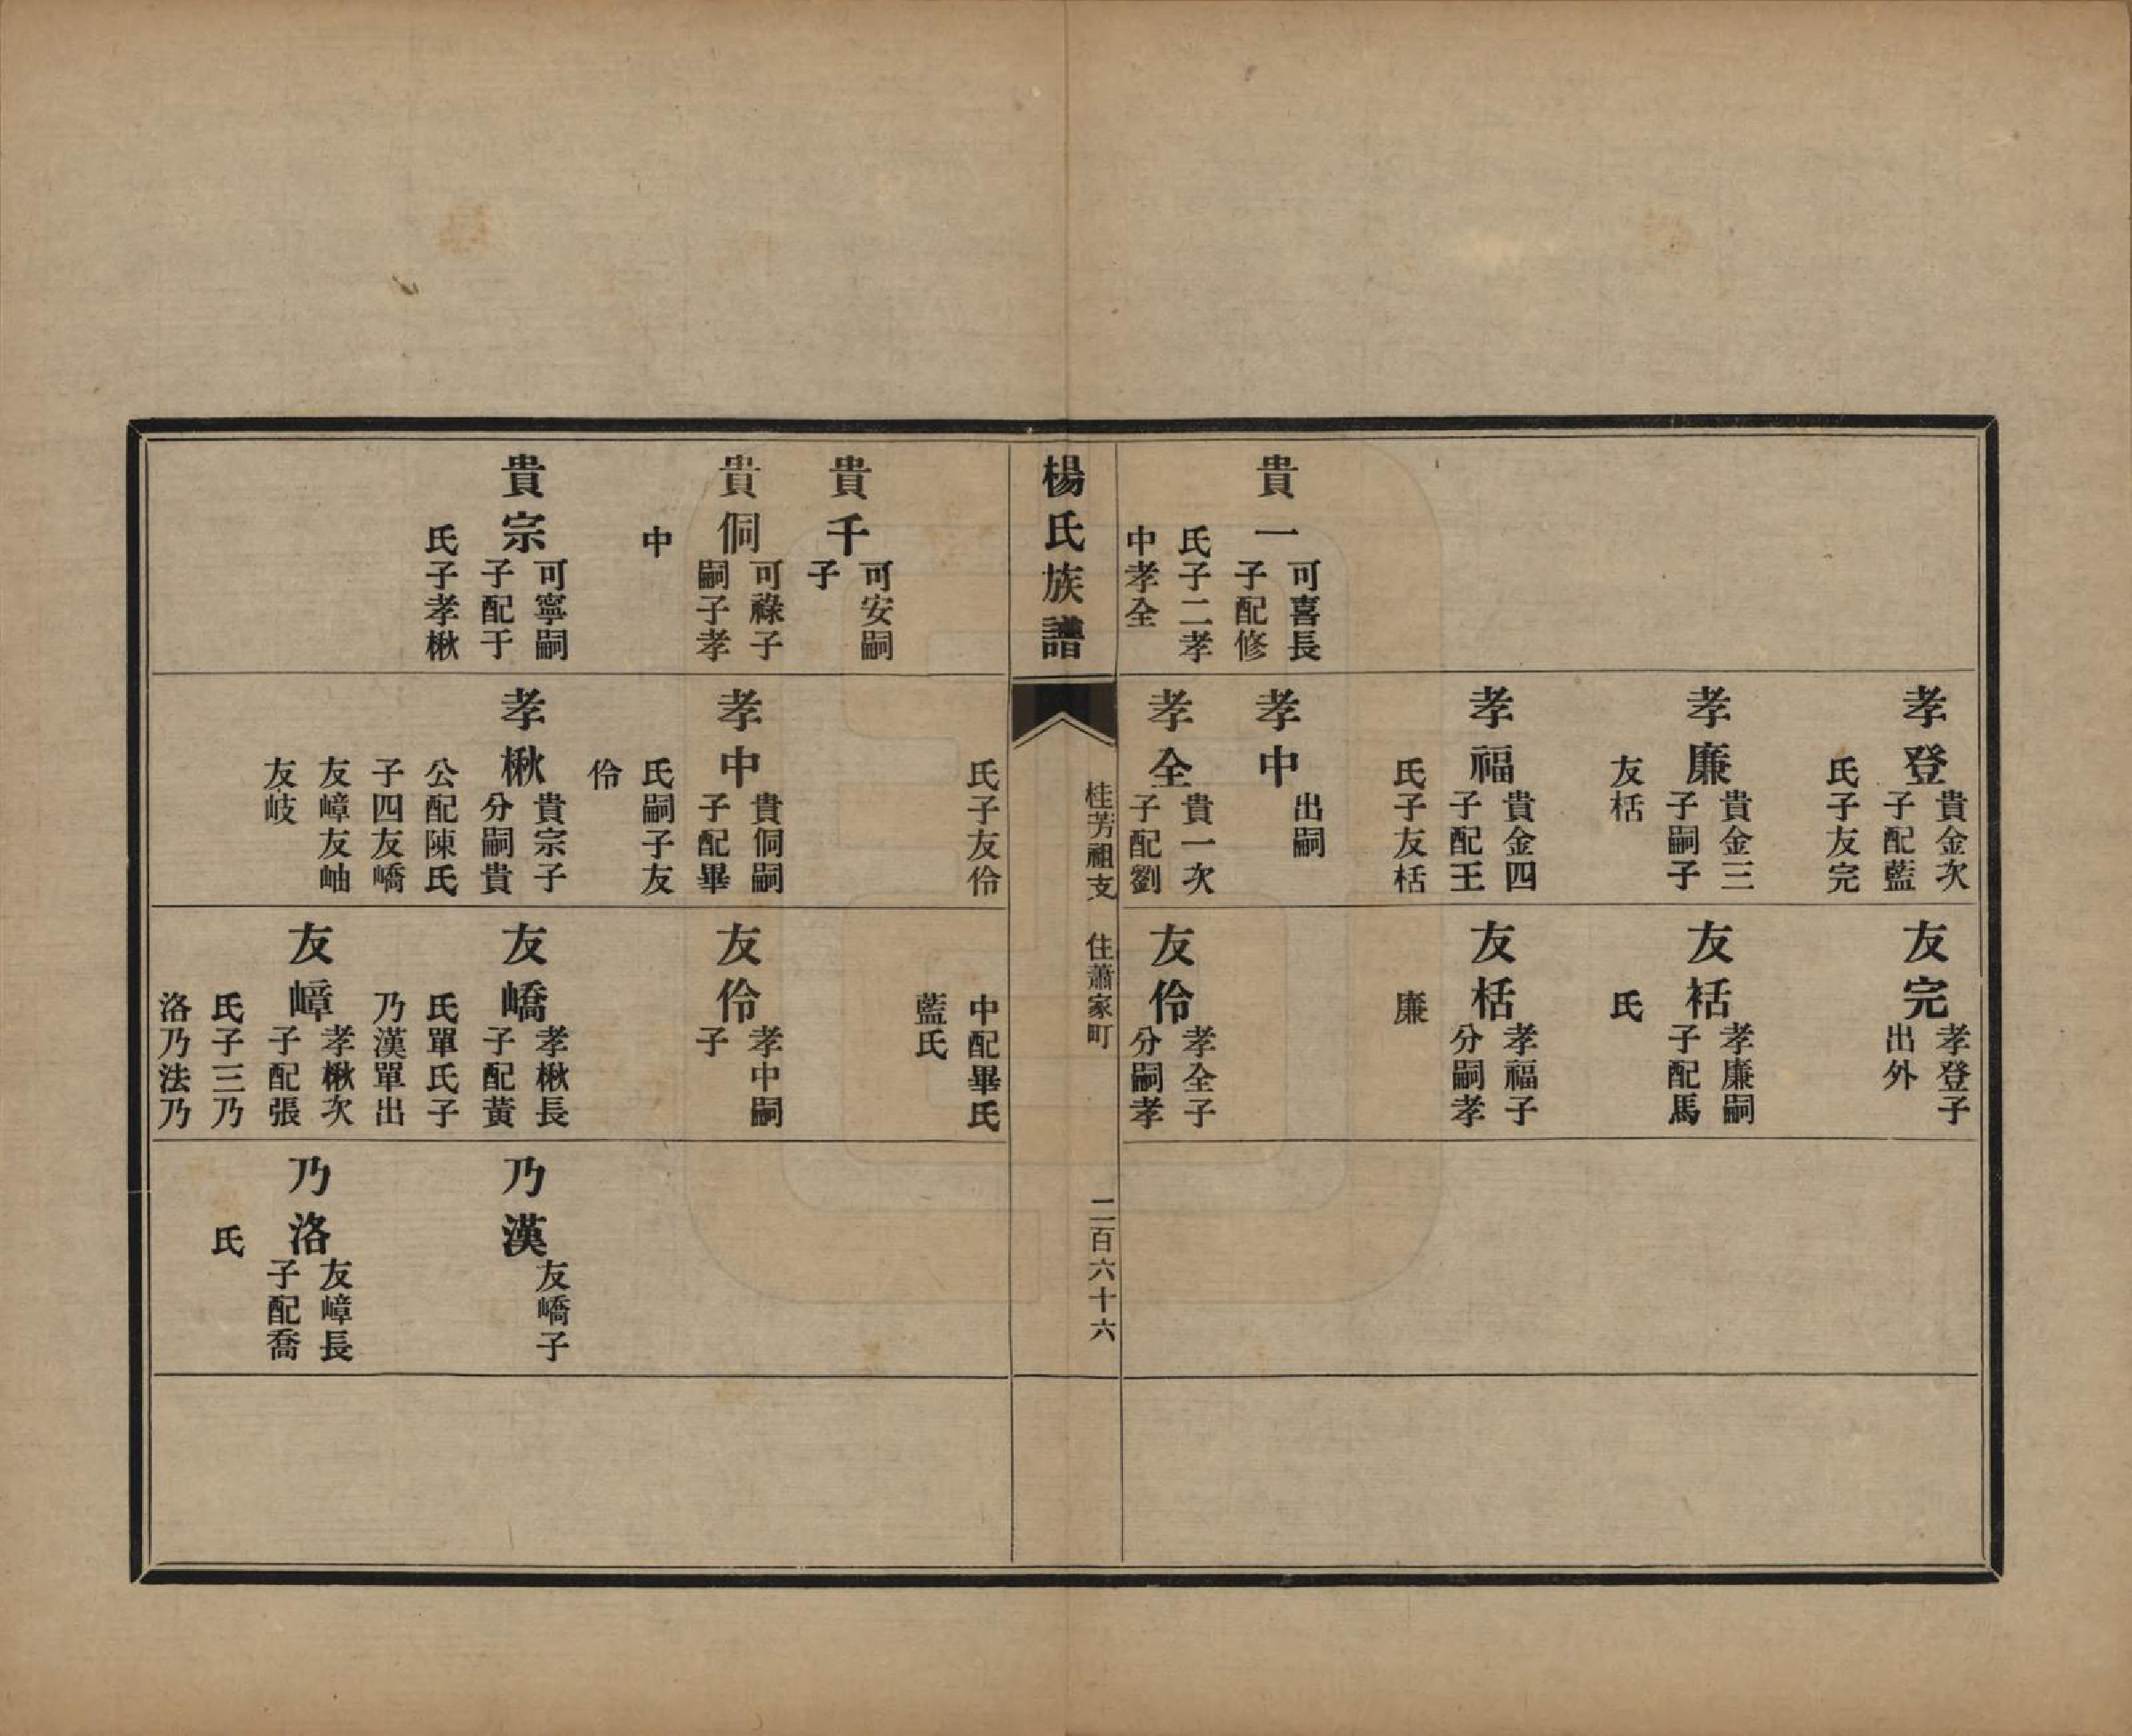 貴一
可喜長
子配修
氏子二孝
中孝全
孝登
貴金次
子配藍
氏子友完
孝廉
貴金三
子嗣子
友栝
孝福
貴金四
子配王
氏子友栝
孝中
出嗣
孝全
貴一次
子配劉
友完
孝登子
出外
友栝
孝廉嗣
子配馬
氏
友栝
孝福子
分嗣孝
廉
友伶
孝全子
分嗣孝
楊氏族譜
桂芳祖支 住蕭家町
二百六十六
貴千
可安嗣
子
貴侗
可祿子
嗣子孝
中
貴宗
可寧嗣
子配于
氏子孝楸
氏子友伶
孝中
貴侗嗣
子配畢
氏嗣子友
伶
孝楸
貴宗子
分嗣貴
公配陳氏
子四友嶠
友嶂友岫
友岐
中配畢氏
藍氏
友伶
孝中嗣
子
友嶠
孝楸長
子配黃
氏單氏子
乃漢單出
友嶂
孝楸次
子配張
氏子三乃
洛乃法乃
乃漢
友嶠子
乃洛
友嶂長
子配喬
氏